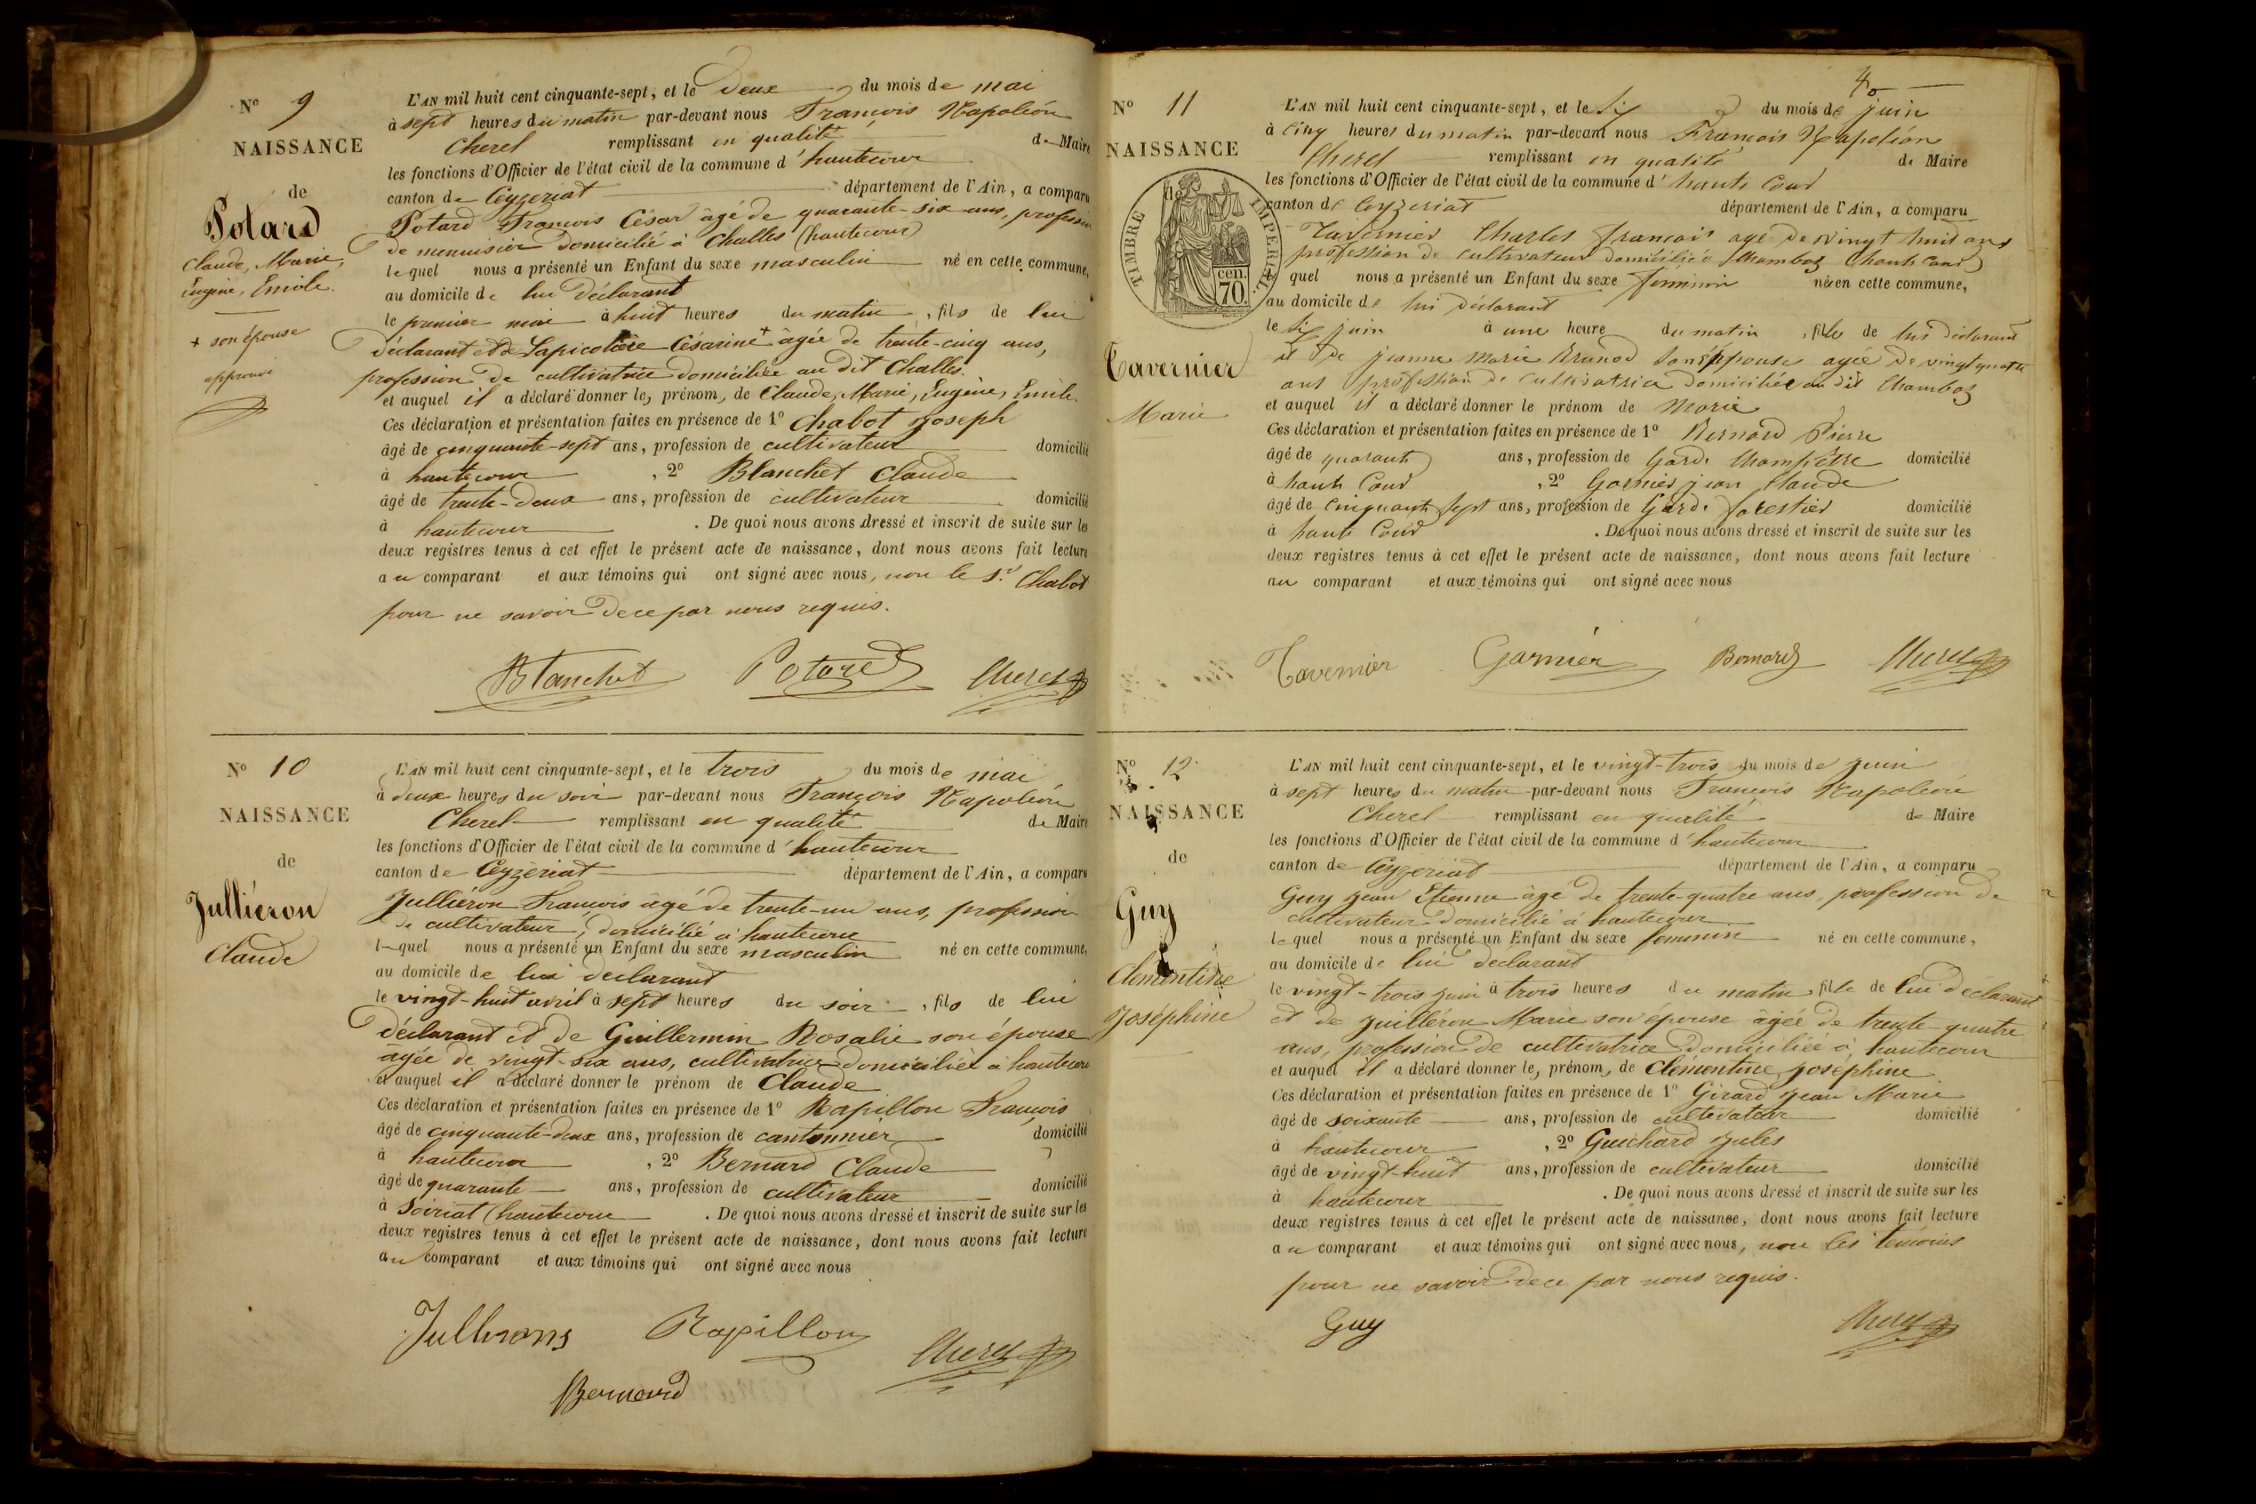 N° 9
NAISSANCE
de
Potard
Claude, Marie,
Eugène, Emile.
+ son épouse
approuvé
L'AN mil huit cent cinquante-sept, et le deux du mois de mai
à sept heures du matin par-devant nous François Napoléon
Cherel remplissant en qualité de Maire
les fonctions d'Officier de l'état civil de la commune d'hautecour
canton de Ceyzeriat département de l'Ain, a comparu
Potard François César âgé de quarante-six ans, profession
de menuisier domicilié à Challes (hautecour)
lequel nous a présenté un Enfant du sexe masculin né en cette commune,
au domicile de lui déclarant
le premier mai à huit heures du matin, fils de lui
déclarant et de Lapicotière Césarine + âgée de trente-cinq ans,
profession de cultivatrice domiciliée au dit Challes.
et auquel il a déclaré donner les prénoms de Claude, Marie, Eugène, Emile.
Ces déclaration et présentation faites en présence de 1° Chabot Joseph
âgé de cinquante-sept ans, profession de cultivateur domicilié
à hautecour, 2° Blanchet Claude
âgé de trente-deux ans, profession de cultivateur domicilié
à hautecour. De quoi nous avons dressé et inscrit de suite sur les
deux registres tenus à cet effet le présent acte de naissance, dont nous avons fait lecture
au comparant et aux témoins qui ont signé avec nous, non le Sr Chabot
pour ne savoir de ce par nous requis.
Blanchet Potard Cherel
N° 10
NAISSANCE
de
Jullièron
Claude
L'AN mil huit cent cinquante-sept, et le trois du mois de mai
à deux heures du soir par-devant nous François Napoléon
Cherel remplissant en qualité de Maire
les fonctions d'Officier de l'état civil de la commune d'hautecour
canton de Ceyzériat département de l'Ain, a comparu
Jullièron François âgé de trente-un ans, profession
de cultivateur, domicilié à hautecour
lequel nous a présenté un Enfant du sexe masculin né en cette commune,
au domicile de lui déclarant
le vingt-huit avril à sept heures du soir, fils de lui
déclarant et de Guillermin Rosalie son épouse
âgée de vingt-six ans, cultivatrice domiciliée à hautecour
et auquel il a déclaré donner le prénom de Claude
Ces déclaration et présentation faites en présence de 1° Rapillon François
âgé de cinquante-deux ans, profession de cantonnier domicilié
à hautecour, 2° Bernard Claude
âgé de quarante ans, profession de cultivateur domicilié
à Soiriat (hautecour. De quoi nous avons dressé et inscrit de suite sur les
deux registres tenus à cet effet le présent acte de naissance, dont nous avons fait lecture
au comparant et aux témoins qui ont signé avec nous
Rapillon Cherel
Bernard
N° 11
NAISSANCE
TIMBRE IMPERIAL
70 cen.
Tavernier
Marie
L'AN mil huit cent cinquante-sept, et le six du mois de juin
à cinq heures du matin par-devant nous François Napoléon
Cherel remplissant en qualité de Maire
les fonctions d'Officier de l'état civil de la commune d'haute Cour
canton de Ceyzeriat département de l'Ain, a comparu
Tavernier Charles françois agé de vingt huit ans
profession de cultivateur domicilié à Chambaz (haute Cour)
quel nous a présenté un Enfant du sexe féminin née en cette commune,
au domicile de lui déclarant
le six juin à une heure du matin, fille de lui déclarant
et de jeanne Marie Brunod son épouse agée de vingt quatre
ans profession de cultivatrice domiciliée au dit Chambaz
et auquel il a déclaré donner le prénom de Marie
Ces déclaration et présentation faites en présence de 1° Bernard Pierre
âgé de quarante ans, profession de Garde Champêtre domicilié
à haute Cour, 2° Garnier jean Claude
âgé de cinquante sept ans, profession de Garde forestier domicilié
à haute Cour. De quoi nous avons dressé et inscrit de suite sur les
deux registres tenus à cet effet le présent acte de naissance, dont nous avons fait lecture
au comparant et aux témoins qui ont signé avec nous
Tavernier Garnier Bernard Cherel
N° 12
NAISSANCE
de
Guy
Clémentine
Joséphine
L'AN mil huit cent cinquante-sept, et le vingt-trois du mois de juin
à sept heures du matin par-devant nous François Napoléon
Cherel remplissant en qualité de Maire
les fonctions d'Officier de l'état civil de la commune d'hautecour
canton de Ceyzériat département de l'Ain, a comparu
Guy Jean Etienne âgé de trente-quatre ans, profession de
cultivateur domicilié à hautecour
lequel nous a présenté un Enfant du sexe feminin né en cette commune,
au domicile de lui déclarant
le vingt-trois juin à trois heures du matin, fille de lui déclarant
et de Juilléron Marie son épouse âgée de trente-quatre
ans, profession de cultivatrice domiciliée à hautecour
et auquel il a déclaré donner les prénoms de Clémentine Joséphine
Ces déclaration et présentation faites en présence de 1° Girard Jean Marie
âgé de soixante ans, profession de cultivateur domicilié
à hautecour, 2° Guichard Jules
âgé de vingt-huit ans, profession de cultivateur domicilié
à hautecour. De quoi nous avons dressé et inscrit de suite sur les
deux registres tenus à cet effet le présent acte de naissance, dont nous avons fait lecture
au comparant et aux témoins qui ont signé avec nous, non les témoins
pour ne savoir de ce par nous requis.
Guy Cherel